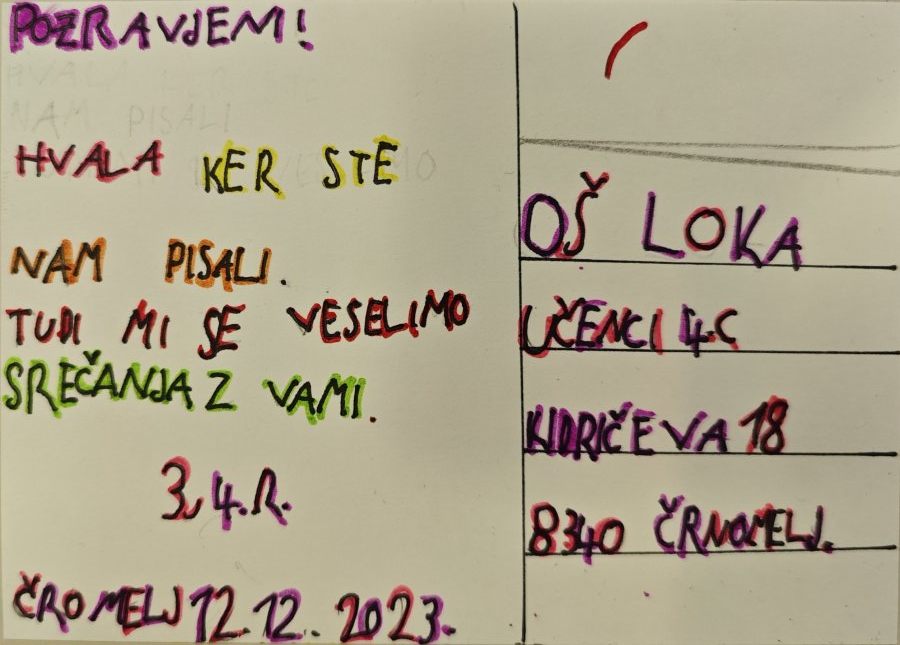 POZRAVJEM!
HVALA KER STE
NAM PISALI.
TUDI MI SE VESELIMO
SREČANJA Z VAMI.
3,4.R.
ČROMELJ 12.12. 2023.
OŠ LOKA
UČENCI 4.C
KIDRIČEVA 18
8340 ČRNOMELJ.